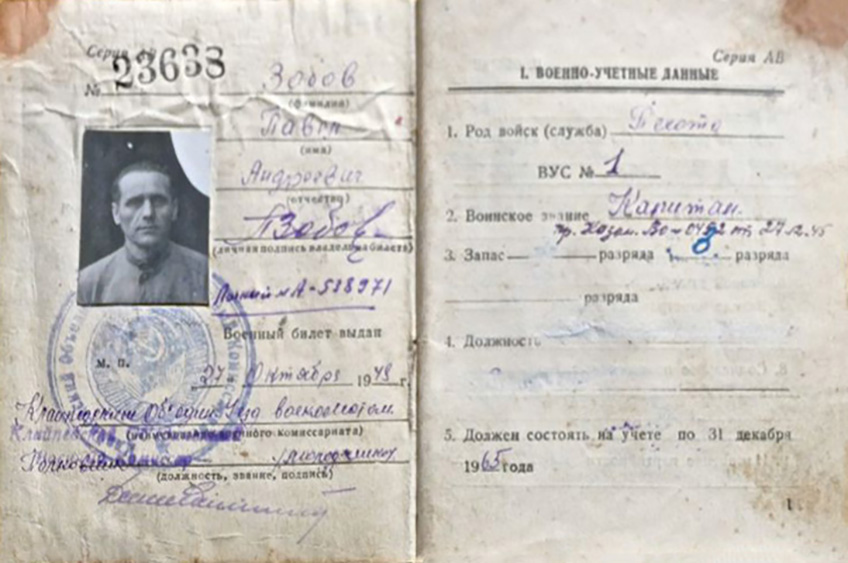 Серия АВ
№ 23638
Зобов
(фамилия)
Павел
(имя)
Андреевич
(отчество)
ПЗобов
(личная подпись владельца билета)
А-588971
Военный билет выдан
м. п.
27 Октября 1948 г.
военкоматом
(наименование военного комиссариата)
(должность, звание, подпись)
Серия АВ
I. ВОЕННО-УЧЕТНЫЕ ДАННЫЕ
1. Род войск (служба) Пехота
ВУС № 1
2. Воинское звание Капитан.
пр. Казан. ВО-0492 от 27.12.45
3. Запас разряда разряда
разряда
4. Должность
5. Должен состоять на учете по 31 декабря
1965 года
1